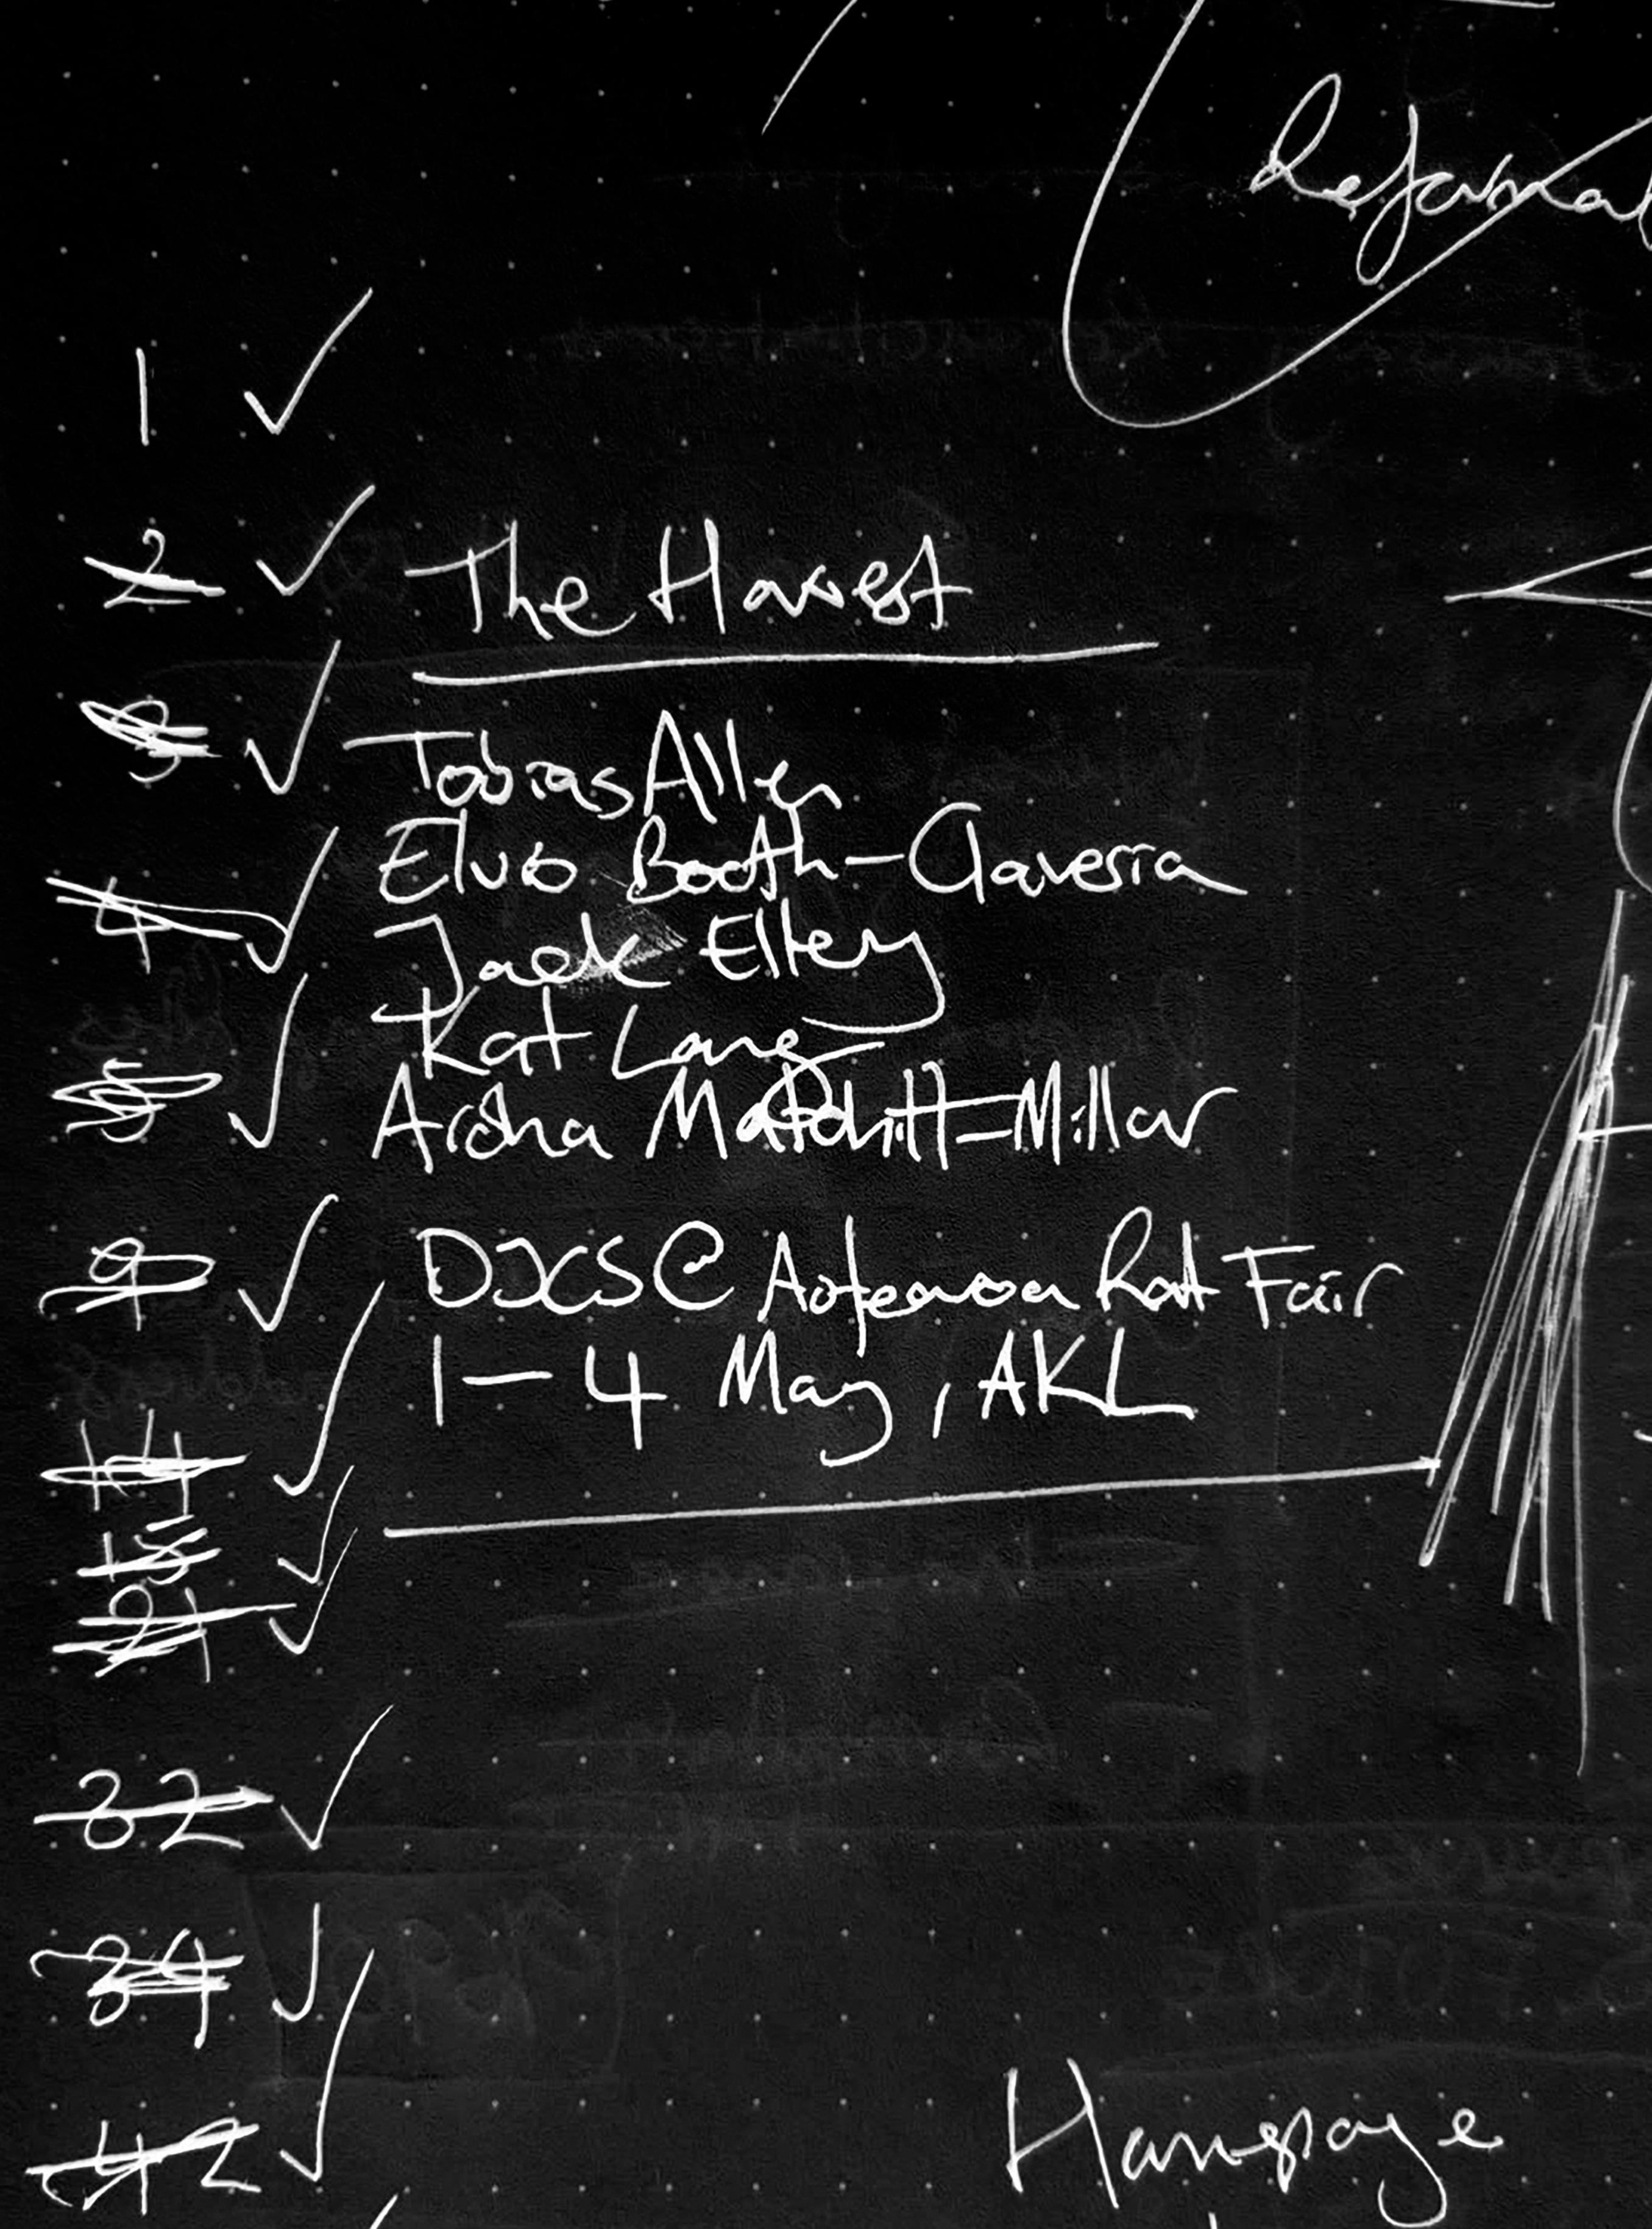 1 ✓
2 ✓ The Harvest
3 ✓ Tobias Allen
Elvis Booth-Claveria
4 ✓ Jack Ellery
Kat Lang
5 ✓ Aisha Matchitt-Millar
9 ✓ DJCS @ Aotearoa Rat Fair
1-4 May, AKL
14 ✓
✓
✓
32 ✓
34 ✓
42 ✓
Homepage